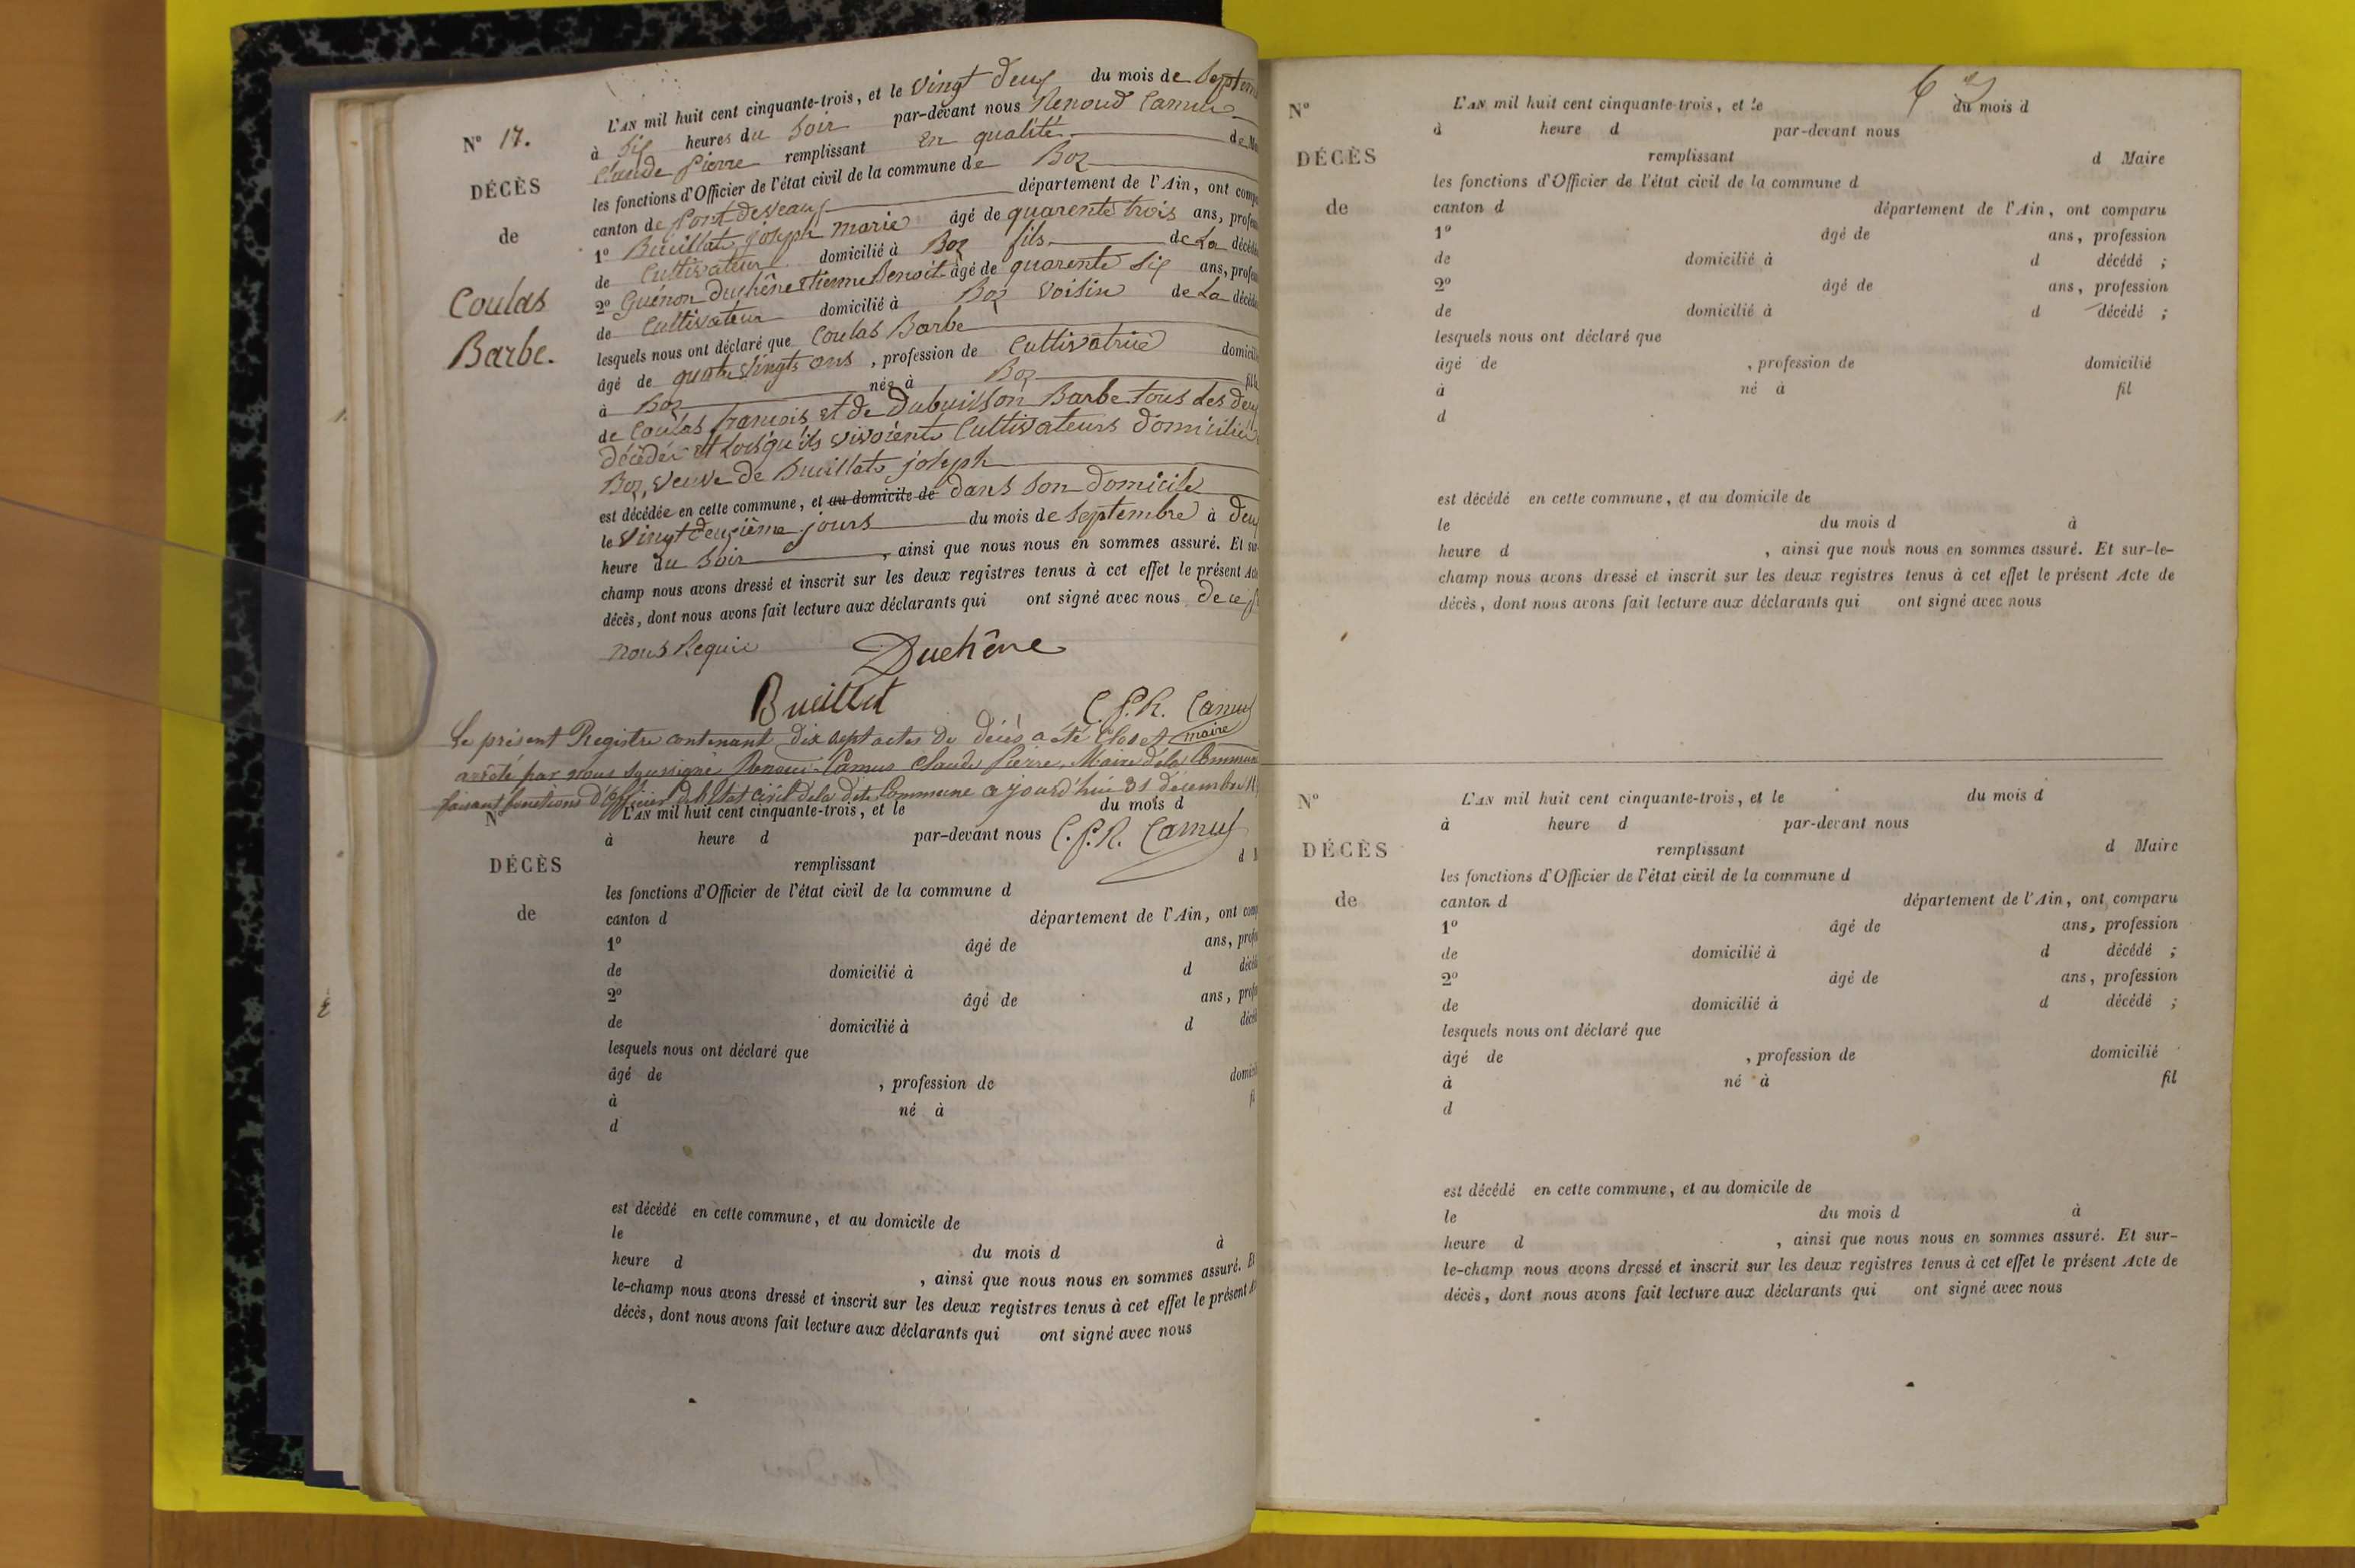 N° 17.
DÉCÈS
de
Coulas
Barbe.
L'AN mil huit cent cinquante-trois, et le vingt deux du mois de Septem
à six heures du Soir par-devant nous Renoud Camus
Claude Pierre remplissant en qualité de Ma
les fonctions d'Officier de l'état civil de la commune de Boz
canton de Pont deveaux département de l'Ain, ont comp
1° Buillat joseph marie âgé de quarente trois ans, profes
de Cultivateur domicilié à Boz fils de La décéd
2° Guénon Duchêne Etienne Benoit âgé de quarente six ans, profes
de Cultivateur domicilié à Boz voisin de La décéd
lesquels nous ont déclaré que Coulas Barbe
âgé de quatre vingts ans, profession de Cultivatrice domicil
à Boz née à Boz fill
de Coulas francois et de Dubuisson Barbe tous les deux
décédés et lorsqu'ils vivoients Cultivateurs domiciliés
Boz, veuve de Buillat joseph
est décédée en cette commune, et au domicile de dans son domicile
le vingt deuxième jours du mois de Septembre à deux
heure du Soir, ainsi que nous nous en sommes assuré. Et sur-
champ nous avons dressé et inscrit sur les deux registres tenus à cet effet le présent Acte
décès, dont nous avons fait lecture aux déclarants qui ont signé avec nous de ce
nous Requis
Duchêne
Buillat
C. P. R. Camus
maire
Le présent Registre contenant dix sept actes de décès a été Clos et
arrêté par nous soussigné Renoud-Camus Claude Pierre, Maire dela Commune
faisant fonctions d'Officier del'Etat civil dela dite Commune ajourd'hui 31 décembre
C. P. R. Camus
N°
DÉCÈS
de
L'AN mil huit cent cinquante-trois, et le du mois d
à heure d par-devant nous
remplissant d M
les fonctions d'Officier de l'état civil de la commune d
canton d département de l'Ain, ont comp
1° âgé de ans, profes
de domicilié à d décéd
2° âgé de ans, profes
de domicilié à d décéd
lesquels nous ont déclaré que
âgé de , profession de domicil
à né à fi
d
est décédé en cette commune, et au domicile de
le du mois d à
heure d , ainsi que nous nous en sommes assuré. Et
le-champ nous avons dressé et inscrit sur les deux registres tenus à cet effet le présent A
décès, dont nous avons fait lecture aux déclarants qui ont signé avec nous
N°
DÉCÈS
de
L'AN mil huit cent cinquante-trois, et le du mois d
à heure d par-devant nous
remplissant d Maire
les fonctions d'Officier de l'état civil de la commune d
canton d département de l'Ain, ont comparu
1° âgé de ans, profession
de domicilié à d décédé ;
2° âgé de ans, profession
de domicilié à d décédé ;
lesquels nous ont déclaré que
âgé de , profession de domicilié
à né à fil
d
est décédé en cette commune, et au domicile de
le du mois d à
heure d , ainsi que nous nous en sommes assuré. Et sur-le-
champ nous avons dressé et inscrit sur les deux registres tenus à cet effet le présent Acte de
décès, dont nous avons fait lecture aux déclarants qui ont signé avec nous
N°
DÉCÈS
de
L'AN mil huit cent cinquante-trois, et le du mois d
à heure d par-devant nous
remplissant d Maire
les fonctions d'Officier de l'état civil de la commune d
canton d département de l'Ain, ont comparu
1° âgé de ans, profession
de domicilié à d décédé ;
2° âgé de ans, profession
de domicilié à d décédé ;
lesquels nous ont déclaré que
âgé de , profession de domicilié
à né à fil
d
est décédé en cette commune, et au domicile de
le du mois d à
heure d , ainsi que nous nous en sommes assuré. Et sur-
le-champ nous avons dressé et inscrit sur les deux registres tenus à cet effet le présent Acte de
décès, dont nous avons fait lecture aux déclarants qui ont signé avec nous